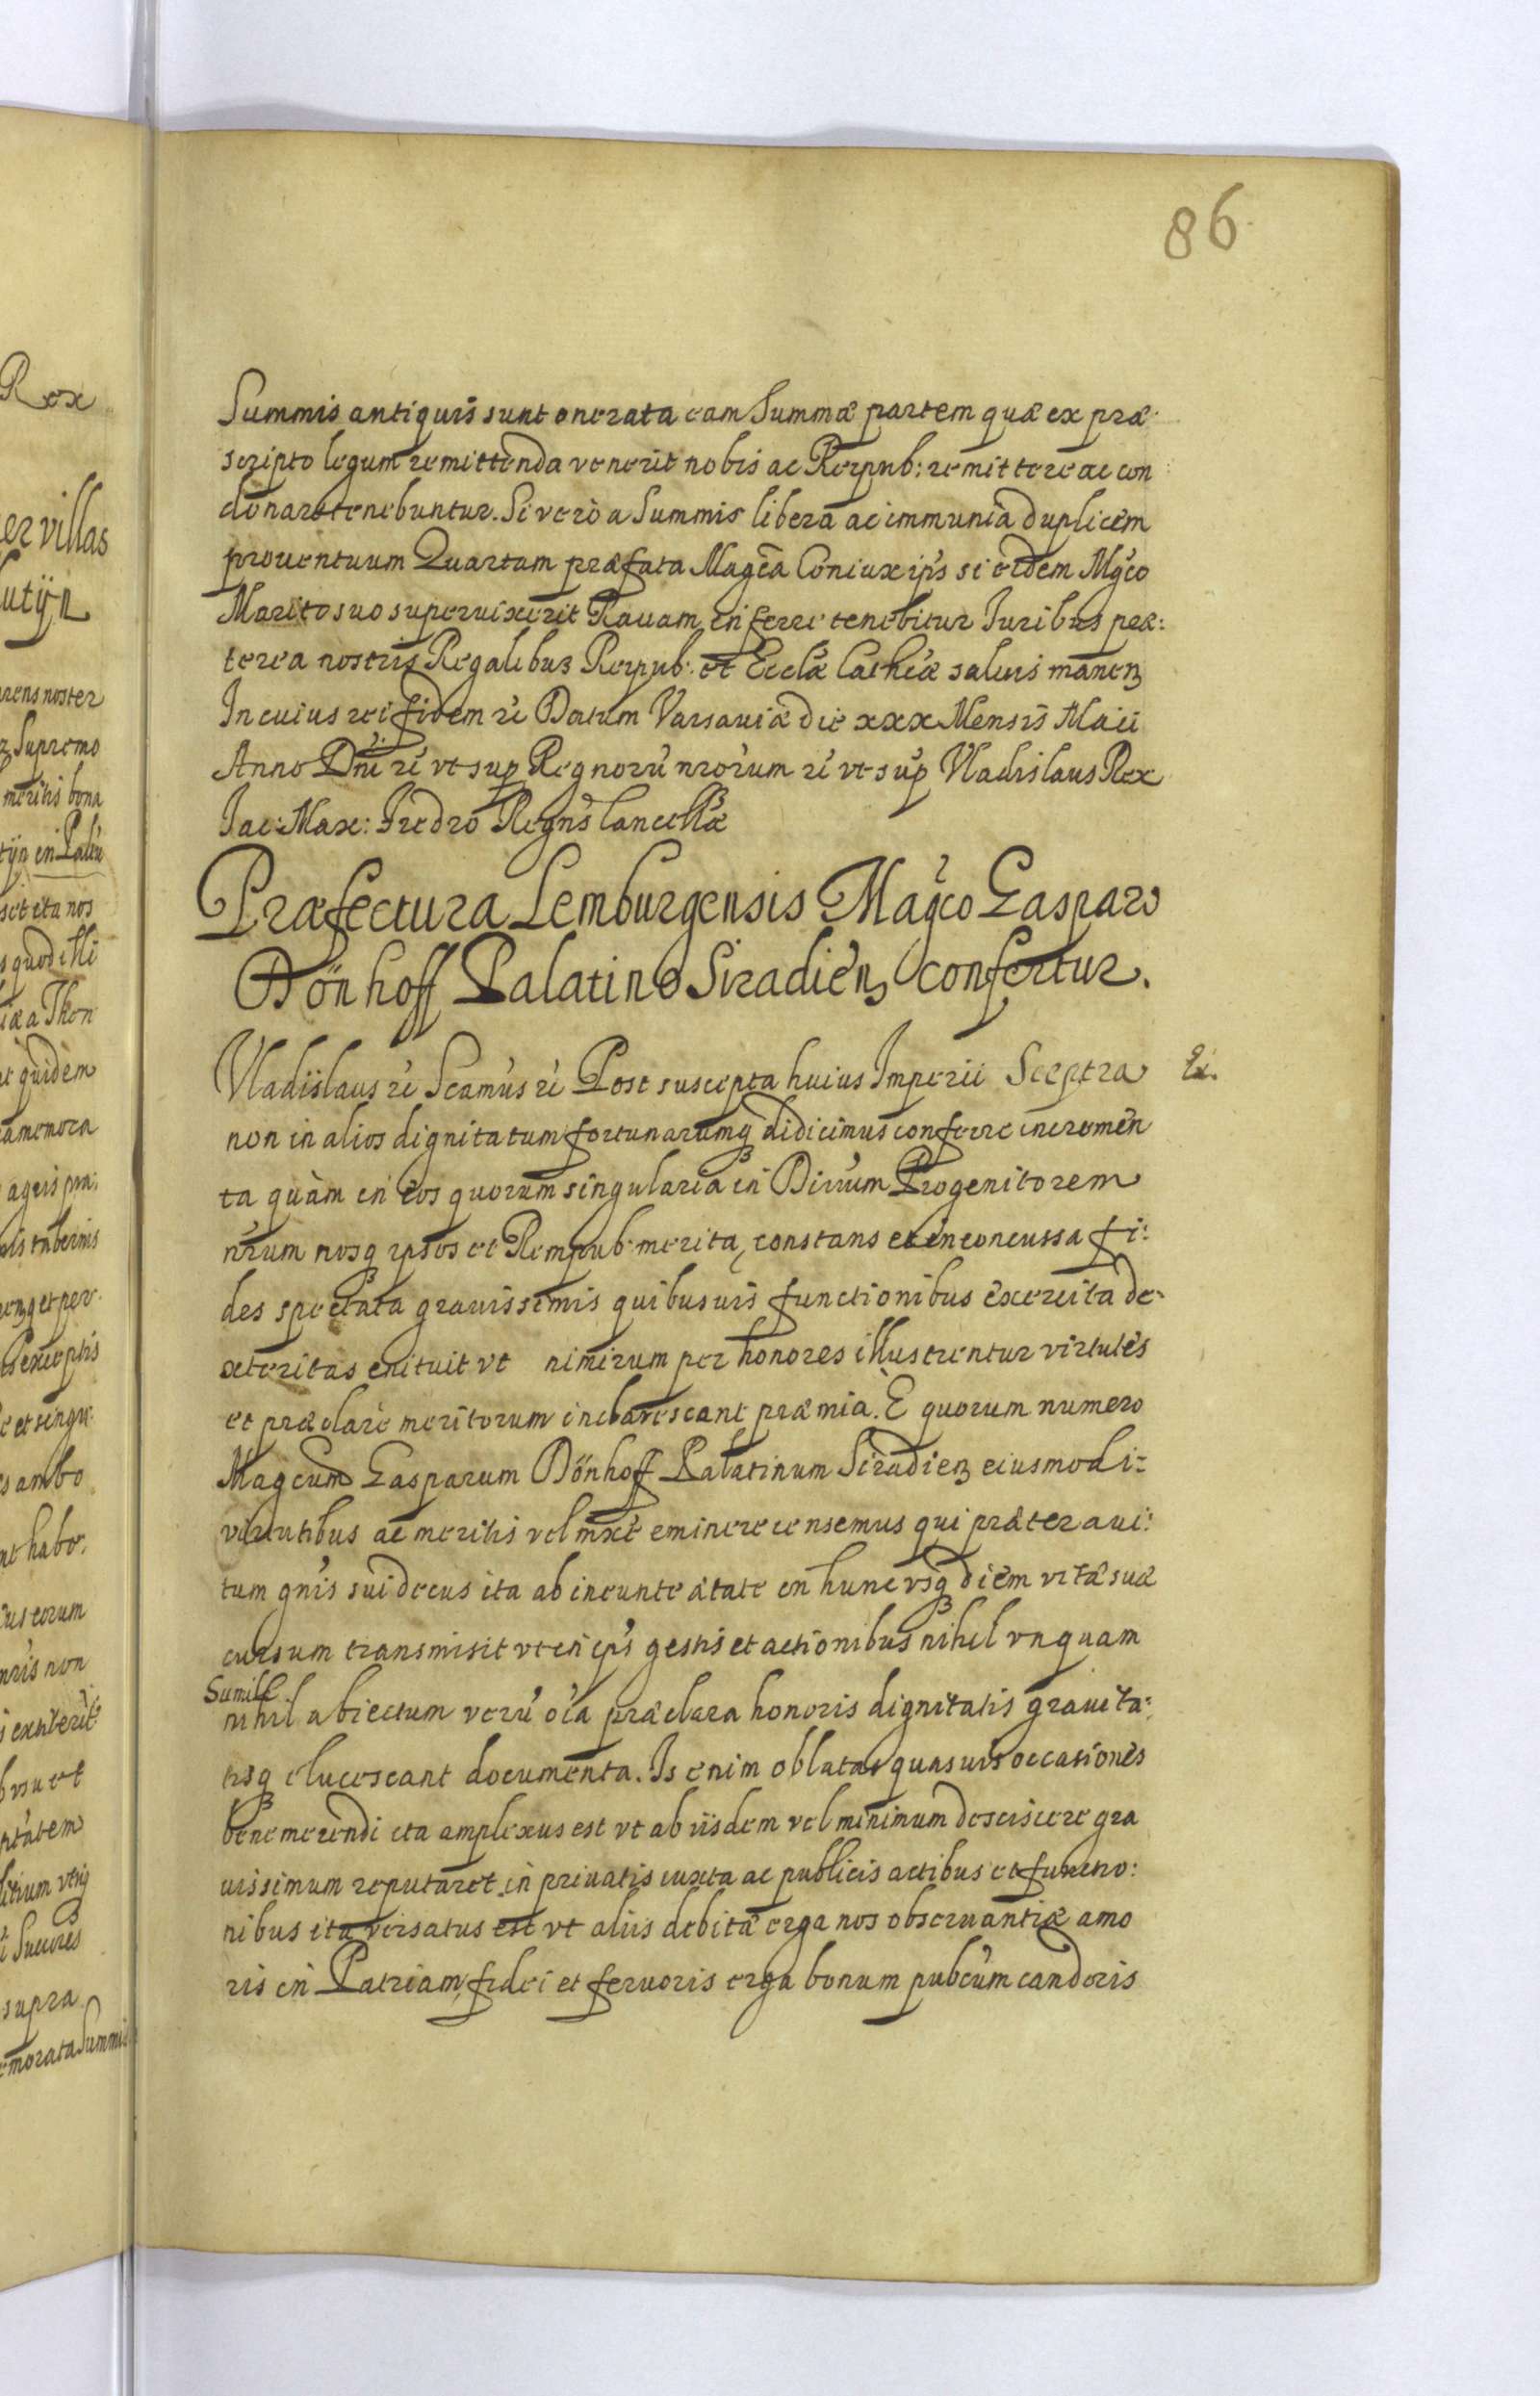 86
Summis antiquis sunt onerata eam Summæ partem quæ ex præ:
scripto legum remittenda venerit nobis ac Reipub: remittere ac con
donare tenebuntur. Si verò a Summis libera ac immunia duplicem
prouentuum Quartam præfata Magca Coniux ips si eidem Mgco
Marito suo superuixerit Rauam inferre tenebitur Iuribus præ:
terea nostris Regalibus Reipub: et Ecclæ Cathcæ saluis manen
In cuius rei fidem rć Datum Varsauiæ die xxx Mensis Maii
Anno Dni rć vt sup Regnorū nrorum rć vt sup Vladislaus Rex
Iac: Max: Fredro Regns Cancellæ
Præfectura Lemburgensis Magco Gaspari
Dönhoff Palatino Siradien confertur.
Vladislaus rć Scamus rć Post suscepta huius Imperii Sceptra
non in alios dignitatum fortunarumq didicimus conferre incremen
ta quàm in eos quorum singularia in Diuum Progenitorem
nrum nosq ipsos et Rempub: merita, constans et inconcussa fi:
des spectata grauissimis quibusuis functionibus exercita de:
xteritas enituit vt nimirum per honores illustrentur virtutes
et præclare meritorum inclarescant præmia. E quorum numero
Magcum Gasparum Dönhoff Palatinum Siradien eiusmodi:
virtutibus ac meritis vel mxe eminere censemus qui præter aui:
tum gnis sui decus ita ab ineunte ætate in hunc vsq diem vitæ suæ
cursum transmisit vt in ips gestis et actionibus nihil vnquam
Sumill
nihil abiectum verū oia præclara honoris dignitatis grauita:
tisq elucescant documenta. Is enim oblatas quasuis occasiones
benemerendi ita amplexus est vt ab iisdem vel minimum desciscere gra
uissimum reputaret in priuatis iuxta ac publicis actibus et functio:
nibus ita versatus est vt aliis debitæ erga nos obseruantiæ amo
ris in Patriam, fidei et feruoris erga bonum pubcum candoris